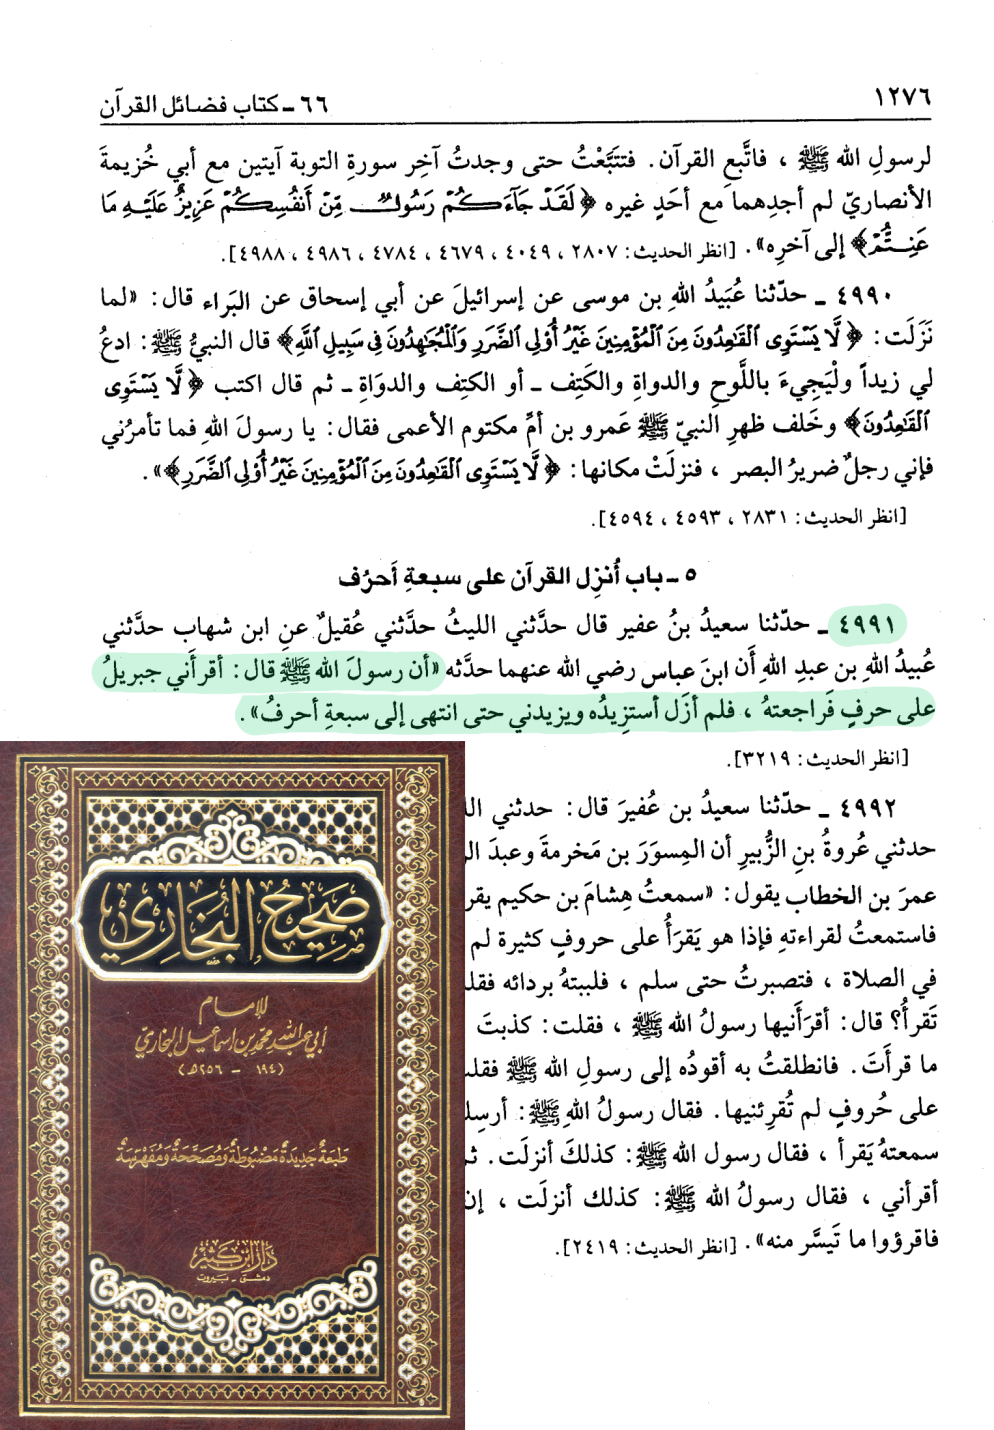 ١٢٧٦
٦٦ ـ كتاب فضائل القرآن
لرسولِ الله ﷺ ، فاتَّبعِ القرآن. فتتَبَّعْتُ حتى وجدتُ آخِر سورةِ التوبة آيتين مع أبي خُزيمةَ
الأنصاريّ لم أجدِهما مع أحَدٍ غيره ﴿لَقَدْ جَآءَكُمْ رَسُولٌ مِّنْ أَنفُسِكُمْ عَزِيزٌ عَلَيْهِ مَا
عَنِتُّمْ﴾ إلى آخرِه». [انظر الحديث: ٢٨٠٧ ، ٤٠٤٩ ، ٤٦٧٩ ، ٤٧٨٤ ، ٤٩٨٦ ، ٤٩٨٨].
٤٩٩٠ ـ حدّثنا عُبَيدُ اللهِ بن موسى عن إسرائيلَ عن أبي إسحاق عن البَراء قال: «لما
نَزَلَت: ﴿لَّا يَسْتَوِى ٱلْقَٰعِدُونَ مِنَ ٱلْمُؤْمِنِينَ غَيْرُ أُوْلِى ٱلضَّرَرِ وَٱلْمُجَٰهِدُونَ فِى سَبِيلِ ٱللَّهِ﴾ قال النبيُّ ﷺ: ادعُ
لي زيداً ولْيَجِيءَ باللَّوحِ والدواةِ والكَتِف ـ أو الكتِف والدوَاةِ ـ ثم قال اكتب ﴿لَّا يَسْتَوِى
ٱلْقَٰعِدُونَ﴾ وخَلف ظهرِ النبيّ ﷺ عَمرو بن أمِّ مكتوم الأعمى فقال: يا رسولَ اللهِ فما تأمرُني
فإني رجلٌ ضريرُ البصر ، فنزلَتْ مكانها: ﴿لَّا يَسْتَوِى ٱلْقَٰعِدُونَ مِنَ ٱلْمُؤْمِنِينَ غَيْرُ أُوْلِى ٱلضَّرَرِ﴾».
[انظر الحديث: ٢٨٣١ ، ٤٥٩٣ ، ٤٥٩٤].
٥ ـ باب أُنزِل القرآن على سبعةِ أَحرُف
٤٩٩١ ـ حدّثنا سعيدُ بنُ عفير قال حدَّثني الليثُ حدَّثني عُقيلٌ عنِ ابن شهاب حدَّثني
عُبيدُ اللهِ بن عبدِ اللهِ أَن ابنَ عباس رضي الله عنهما حدَّثه «أن رسولَ الله ﷺ قال: أقرأَني جبريلُ
على حرفٍ فَراجعتهُ ، فلم أزَل أستزِيدُه ويزيدني حتى انتهى إلى سبعةِ أحرفُ».
[انظر الحديث: ٣٢١٩].
٤٩٩٢ ـ حدّثنا سعيدُ بن عُفيرَ قال: حدثني
حدثني عُروةُ بنِ الزُّبيرِ أن المِسوَرَ بن مَخرمةَ وعبدَ
عمرَ بن الخطاب يقول: «سمعتُ هِشامَ بن حكيم
فاستمعتُ لقراءتهِ فإذا هو يَقرَأُ على حروفٍ كثيرة لم
في الصلاة ، فتصبرتُ حتى سلم ، فلببتهُ بردائه
تَقرأُ؟ قال: أقرَأَنيها رسولُ اللهِ ﷺ ، فقلت: كذبتَ
ما قرأَتَ. فانطلقتُ به أقودُه إلى رسولِ اللهِ ﷺ
على حُروفٍ لم تُقرِئنيها. فقال رسولُ اللهِ ﷺ:
سمعتهُ يَقرأ ، فقال رسول الله ﷺ: كذلكَ أنزلَت.
أقرأني ، فقال رسولُ الله ﷺ: كذلك أنزلَت ،
فاقرؤوا ما تَيسَّر منه». [انظر الحديث: ٢٤١٩].
صَحِيحُ البُخَارِي
للإمام
أبي عبد الله محمد بن إسماعيل البخاري
(١٩٤ - ٢٥٦ه)
طَبعَةٌ جَديدَةٌ مَضبُوطَةٌ وَمُصَحَّحَةٌ وَمُفَهرَسَةٌ
دَارُ ابْنِ كَثِير
دمشق - بيروت